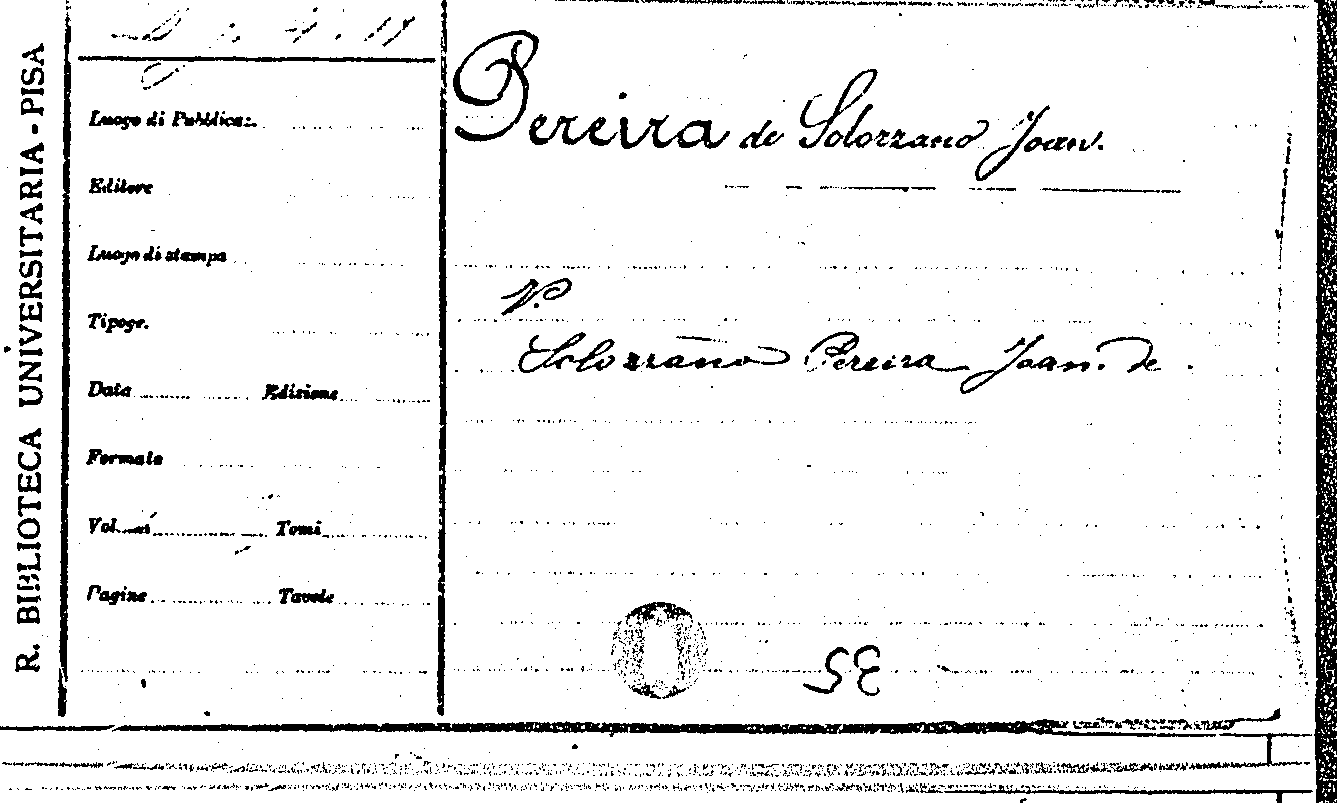 R. BIBLIOTECA UNIVERSITARIA - PISA
Luogo di Pubblicaz.
Editore
Luogo di stampa
Tipogr.
Data Edizione
Formato
Volumi Tomi
Pagine Tavole
Pereira de Solorzano Joan.
V.
Solorzano Pereira Joan. de
SE